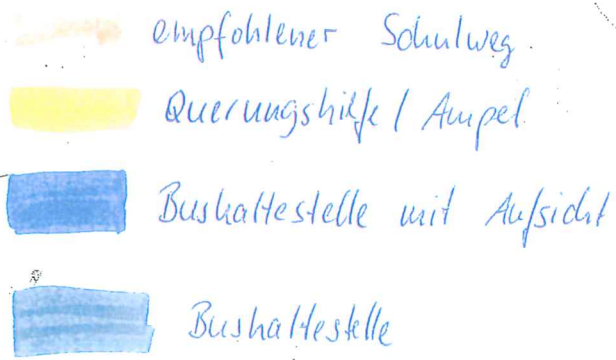 empfohlener Schulweg.
Querungshilfe / Ampel
Bushaltestelle mit Aufsicht
Bushaltestelle